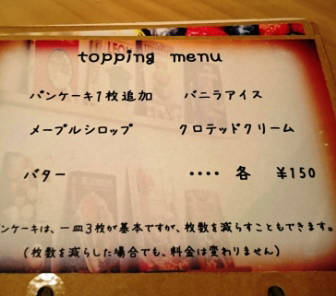 topping menu
パンケーキ1枚追加 バニラアイス
メープルシロップ クロテッドクリーム
バター ‥‥ 各 ¥150
ンケーキは、一皿3枚が基本ですが、枚数を減らすこともできます。
(枚数を減らした場合でも、料金は変わりません)